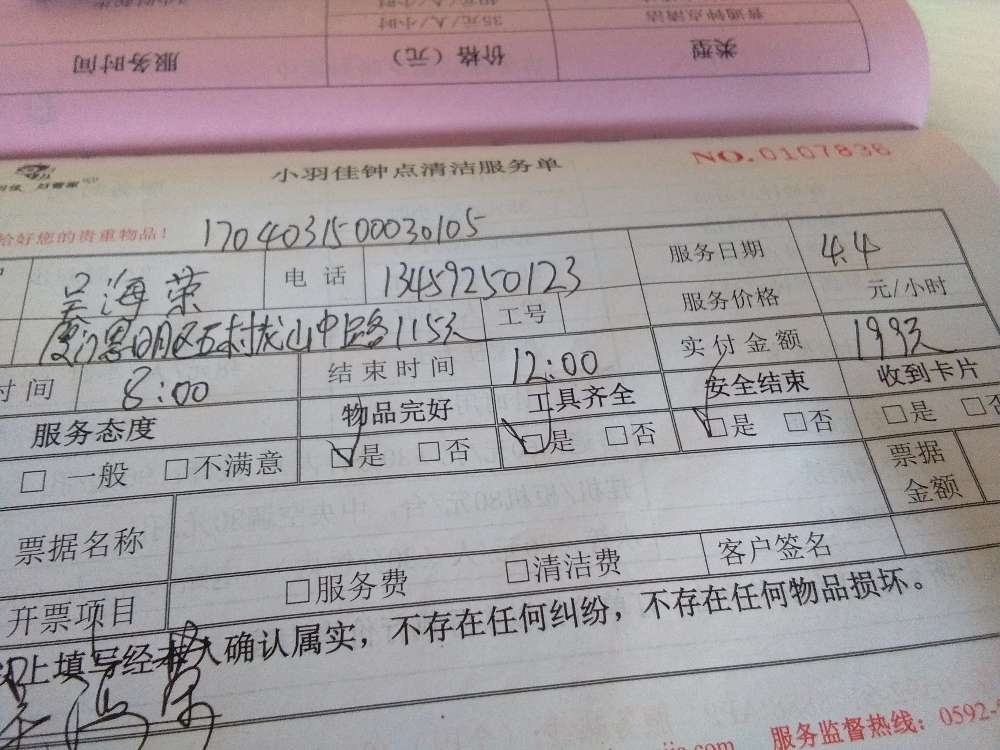 普通钟点清洁 35元/人/小时
类型 价格（元） 服务时间
小羽佳钟点清洁服务单 NO.0107836
好管家
恰好您的贵重物品！ 17040315 00030105
吴海荣 电话 13459250123 服务日期 4.4
厦门思明区 龙山中路115 工号 服务价格 元/小时
时间 8:00 结束时间 12:00 实付金额 199元
服务态度 物品完好 工具齐全 安全结束 收到卡片
□一般 □不满意 □是 □否 □是 □否 □是 □否 □是 □否
票据名称 票据金额
开票项目 □服务费 □清洁费 客户签名
以上填写经本人确认属实，不存在任何纠纷，不存在任何物品损坏。
吴海荣
服务监督热线：0592-